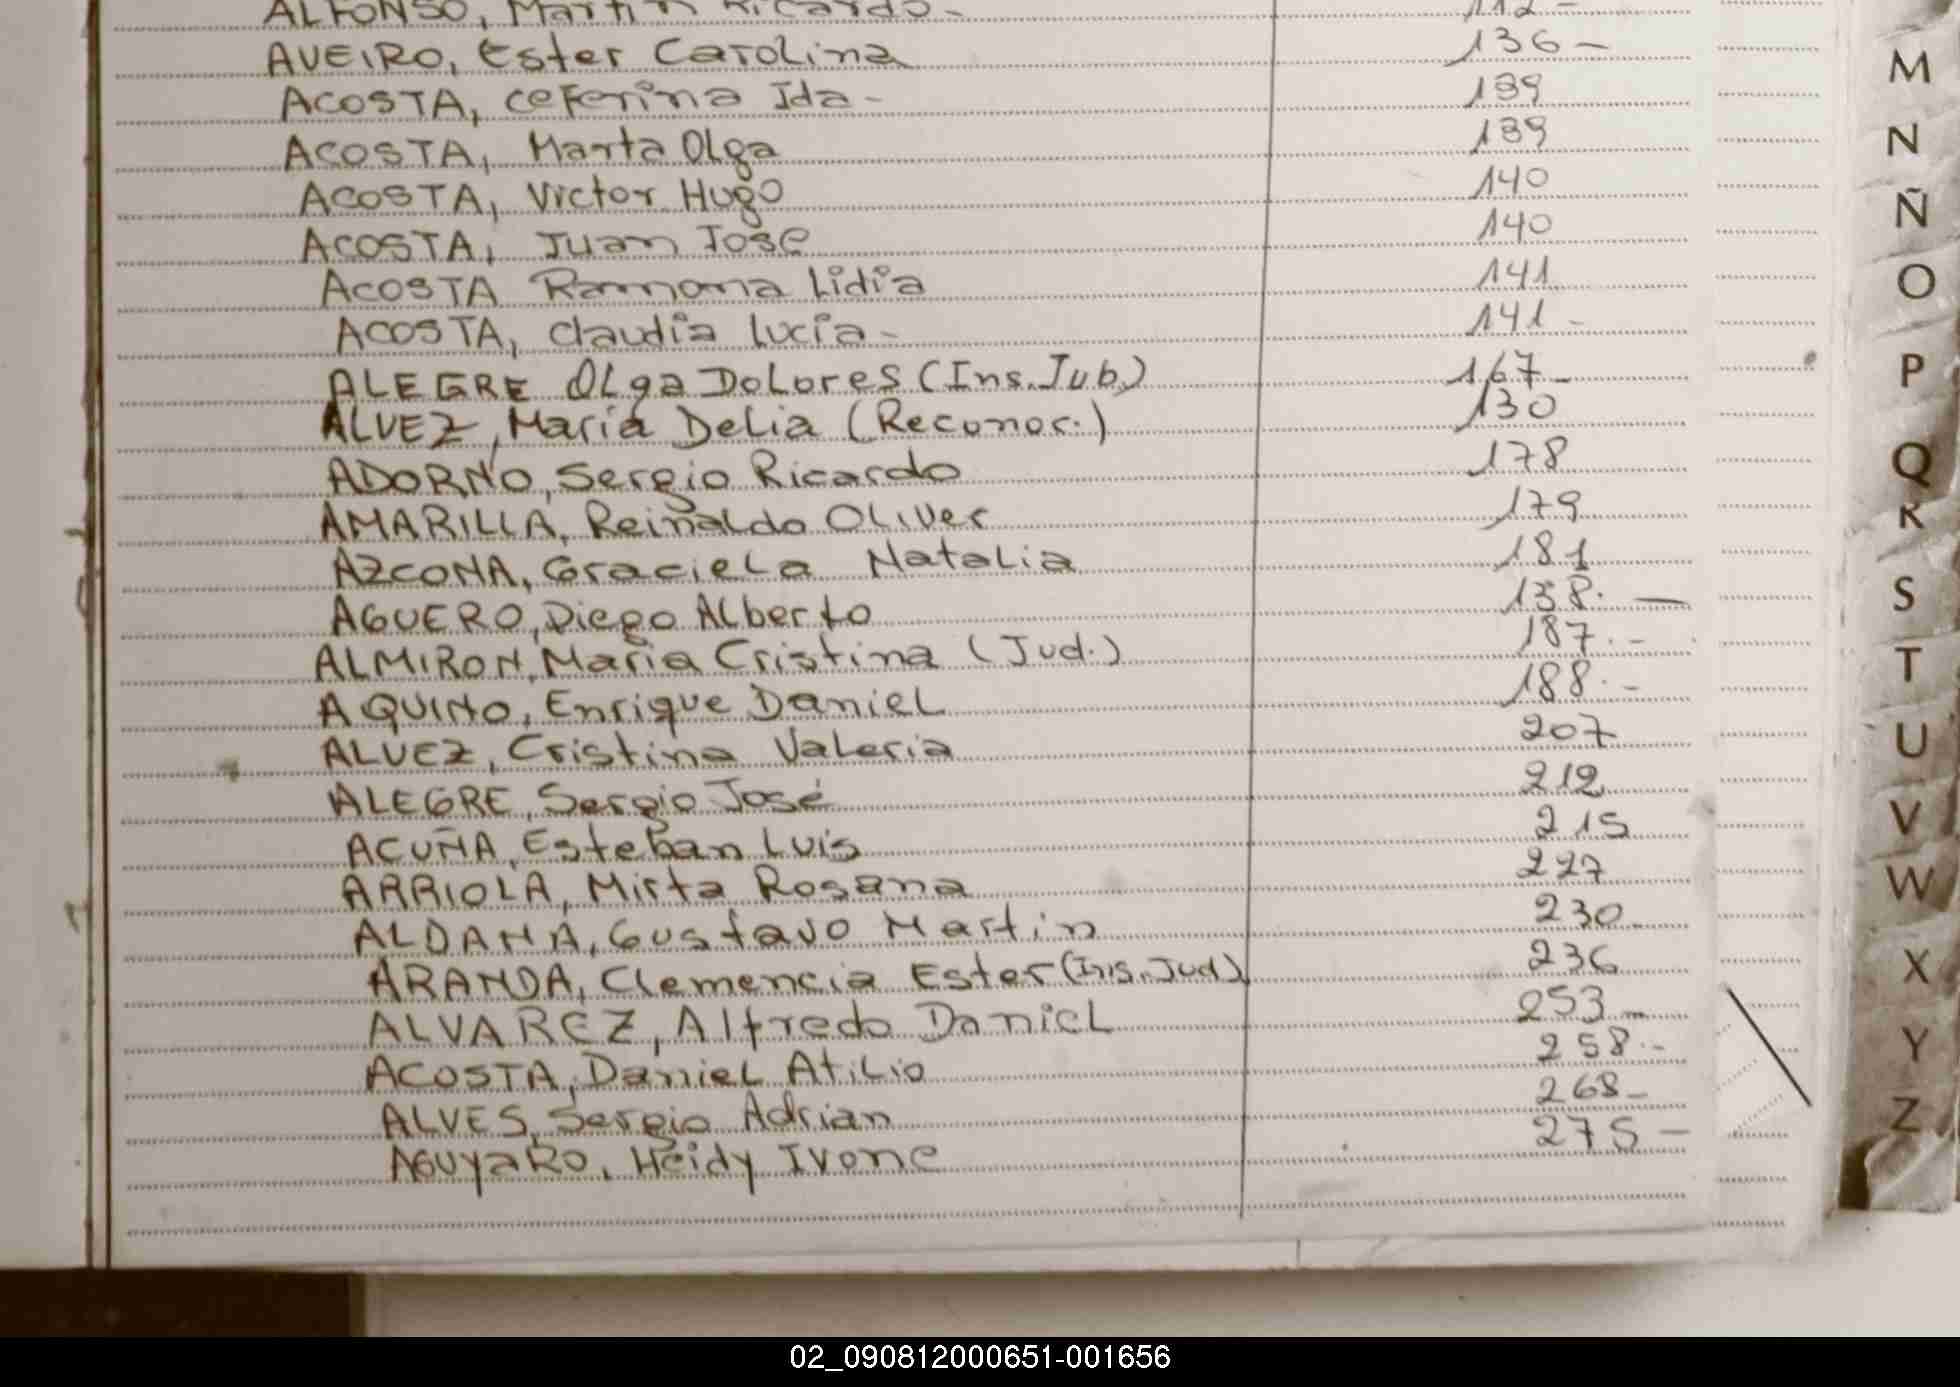 ALFONSO, Martin Ricardo - 112 -
AVEIRO, Ester Carolina 136 -
ACOSTA, Ceferina Ida - 139
ACOSTA, Marta Olga 139
ACOSTA, Victor Hugo 140
ACOSTA, Juan Jose 140
ACOSTA Ramona Lidia 141
ACOSTA, Claudia Lucia - 141 -
ALEGRE Olga Dolores (Ins. Jub.) 167 -
ALVEZ, María Delia (Reconoc.) 130
ADORNO, Sergio Ricardo 178
AMARILLA, Reinaldo Oliver 179
AZCONA, Graciela Natalia 181
AGUERO, Diego Alberto 138. —
ALMIRON, Maria Cristina (Jud.) 187. -
AQUINO, Enrique Daniel 188. -
ALVEZ, Cristina Valeria 207
ALEGRE, Sergio José 212
ACUÑA, Esteban Luis 215
ARRIOLA, Mirta Rosana 227
ALDANA, Gustavo Martin 230 -
ARANDA, Clemencia Ester (Ins. Jud.) 236
ALVAREZ, Alfredo Daniel 253 -
ACOSTA, Daniel Atilio 258. -
ALVES, Sergio Adrian 268 -
AGUYARO, Heidy Ivone 275 -
M
N
Ñ
O
P
Q
R
S
T
U
V
W
X
Y
Z
02_090812000651-001656